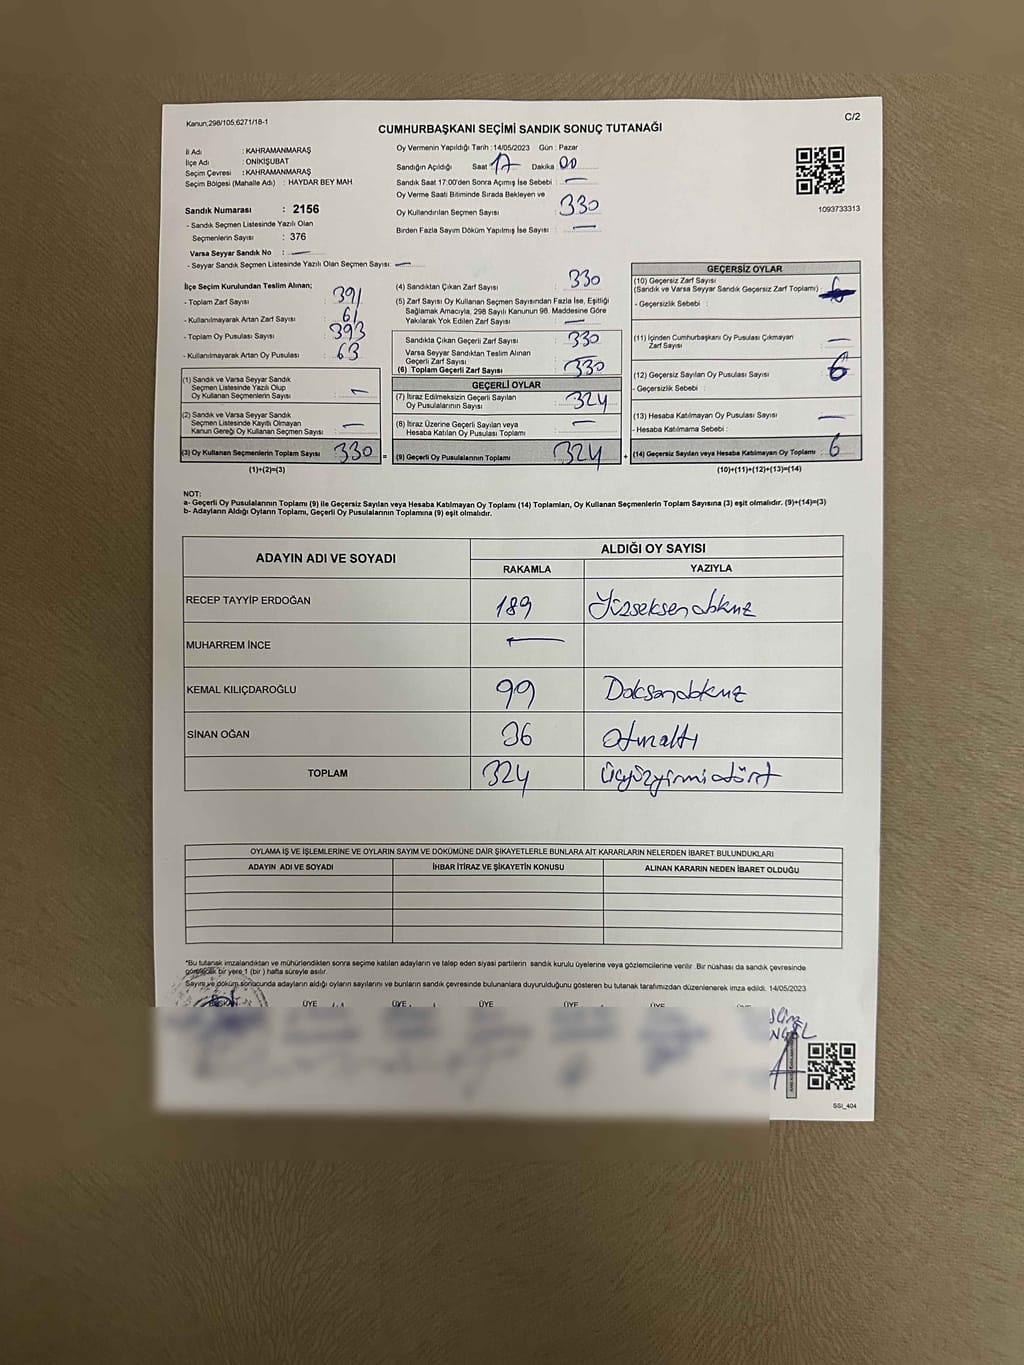 Kanun;298/105;6271/18-1
C/2
CUMHURBAŞKANI SEÇİMİ SANDIK SONUÇ TUTANAĞI
İl Adı : KAHRAMANMARAŞ
İlçe Adı : ONİKİŞUBAT
Seçim Çevresi : KAHRAMANMARAŞ
Seçim Bölgesi (Mahalle Adı) : HAYDAR BEY MAH
Sandık Numarası : 2156
- Sandık Seçmen Listesinde Yazılı Olan
Seçmenlerin Sayısı : 376
Varsa Seyyar Sandık No : —
- Seyyar Sandık Seçmen Listesinde Yazılı Olan Seçmen Sayısı: —
Oy Vermenin Yapıldığı Tarih : 14/05/2023 Gün : Pazar
Sandığın Açıldığı Saat : 17 Dakika : 00
Sandık Saat 17:00'den Sonra Açımış İse Sebebi : —
Oy Verme Saati Bitiminde Sırada Bekleyen ve
Oy Kullandırılan Seçmen Sayısı : 330
Birden Fazla Sayım Döküm Yapılmış İse Sayısı : —
1093733313
İlçe Seçim Kurulundan Teslim Alınan;
- Toplam Zarf Sayısı : 391
- Kullanılmayarak Artan Zarf Sayısı : 61
- Toplam Oy Pusulası Sayısı : 393
- Kullanılmayarak Artan Oy Pusulası : 63
(1) Sandık ve Varsa Seyyar Sandık
Seçmen Listesinde Yazılı Olup
Oy Kullanan Seçmenlerin Sayısı : —
(2) Sandık ve Varsa Seyyar Sandık
Seçmen Listesinde Kayıtlı Olmayan
Kanun Gereği Oy Kullanan Seçmen Sayısı : —
(3) Oy Kullanan Seçmenlerin Toplam Sayısı : 330 =
(1)+(2)=(3)
(4) Sandıktan Çıkan Zarf Sayısı : 330
(5) Zarf Sayısı Oy Kullanan Seçmen Sayısından Fazla İse, Eşitliği
Sağlamak Amacıyla, 298 Sayılı Kanunun 98. Maddesine Göre
Yakılarak Yok Edilen Zarf Sayısı : —
Sandıkta Çıkan Geçerli Zarf Sayısı : 330
Varsa Seyyar Sandıktan Teslim Alınan
Geçerli Zarf Sayısı : —
(6) Toplam Geçerli Zarf Sayısı : 330
GEÇERLİ OYLAR
(7) İtiraz Edilmeksizin Geçerli Sayılan
Oy Pusulalarının Sayısı : 324
(8) İtiraz Üzerine Geçerli Sayılan veya
Hesaba Katılan Oy Pusulası Toplamı : —
(9) Geçerli Oy Pusulalarının Toplamı : 324 +
GEÇERSİZ OYLAR
(10) Geçersiz Zarf Sayısı
(Sandık ve Varsa Seyyar Sandık Geçersiz Zarf Toplamı) :
- Geçersizlik Sebebi :
(11) İçinden Cumhurbaşkanı Oy Pusulası Çıkmayan
Zarf Sayısı : —
(12) Geçersiz Sayılan Oy Pusulası Sayısı : 6
- Geçersizlik Sebebi :
(13) Hesaba Katılmayan Oy Pusulası Sayısı : —
- Hesaba Katılmama Sebebi :
(14) Geçersiz Sayılan veya Hesaba Katılmayan Oy Toplamı : 6
(10)+(11)+(12)+(13)=(14)
NOT:
a- Geçerli Oy Pusulalarının Toplamı (9) ile Geçersiz Sayılan veya Hesaba Katılmayan Oy Toplamı (14) Toplamları, Oy Kullanan Seçmenlerin Toplam Sayısına (3) eşit olmalıdır. (9)+(14)=(3)
b- Adayların Aldığı Oyların Toplamı, Geçerli Oy Pusulalarının Toplamına (9) eşit olmalıdır.
ADAYIN ADI VE SOYADI
ALDIĞI OY SAYISI
RAKAMLA YAZIYLA
RECEP TAYYİP ERDOĞAN 189 Yüzseksendokuz
MUHARREM İNCE —
KEMAL KILIÇDAROĞLU 99 Doksandokuz
SİNAN OĞAN 36 Otuzaltı
TOPLAM 324 Üçyüzyirmidört
OYLAMA İŞ VE İŞLEMLERİNE VE OYLARIN SAYIM VE DÖKÜMÜNE DAİR ŞİKAYETLERLE BUNLARA AİT KARARLARIN NELERDEN İBARET BULUNDUKLARI
ADAYIN ADI VE SOYADI İHBAR İTİRAZ VE ŞİKAYETİN KONUSU ALINAN KARARIN NEDEN İBARET OLDUĞU
*Bu tutanak imzalandıktan ve mühürlendikten sonra seçime katılan adayların ve talep eden siyasi partilerin sandık kurulu üyelerine veya gözlemcilerine verilir. Bir nüshası da sandık çevresinde
görülecek bir yere 1 (bir) hafta süreyle asılır.
Sayım ve döküm sonucunda adayların aldığı oyların sayılarını ve bunların sandık çevresinde bulunanlara duyurulduğunu gösteren bu tutanak tarafımızdan düzenlenerek imza edildi. 14/05/2023
BAŞKAN ÜYE ÜYE ÜYE ÜYE ÜYE
SSI_404